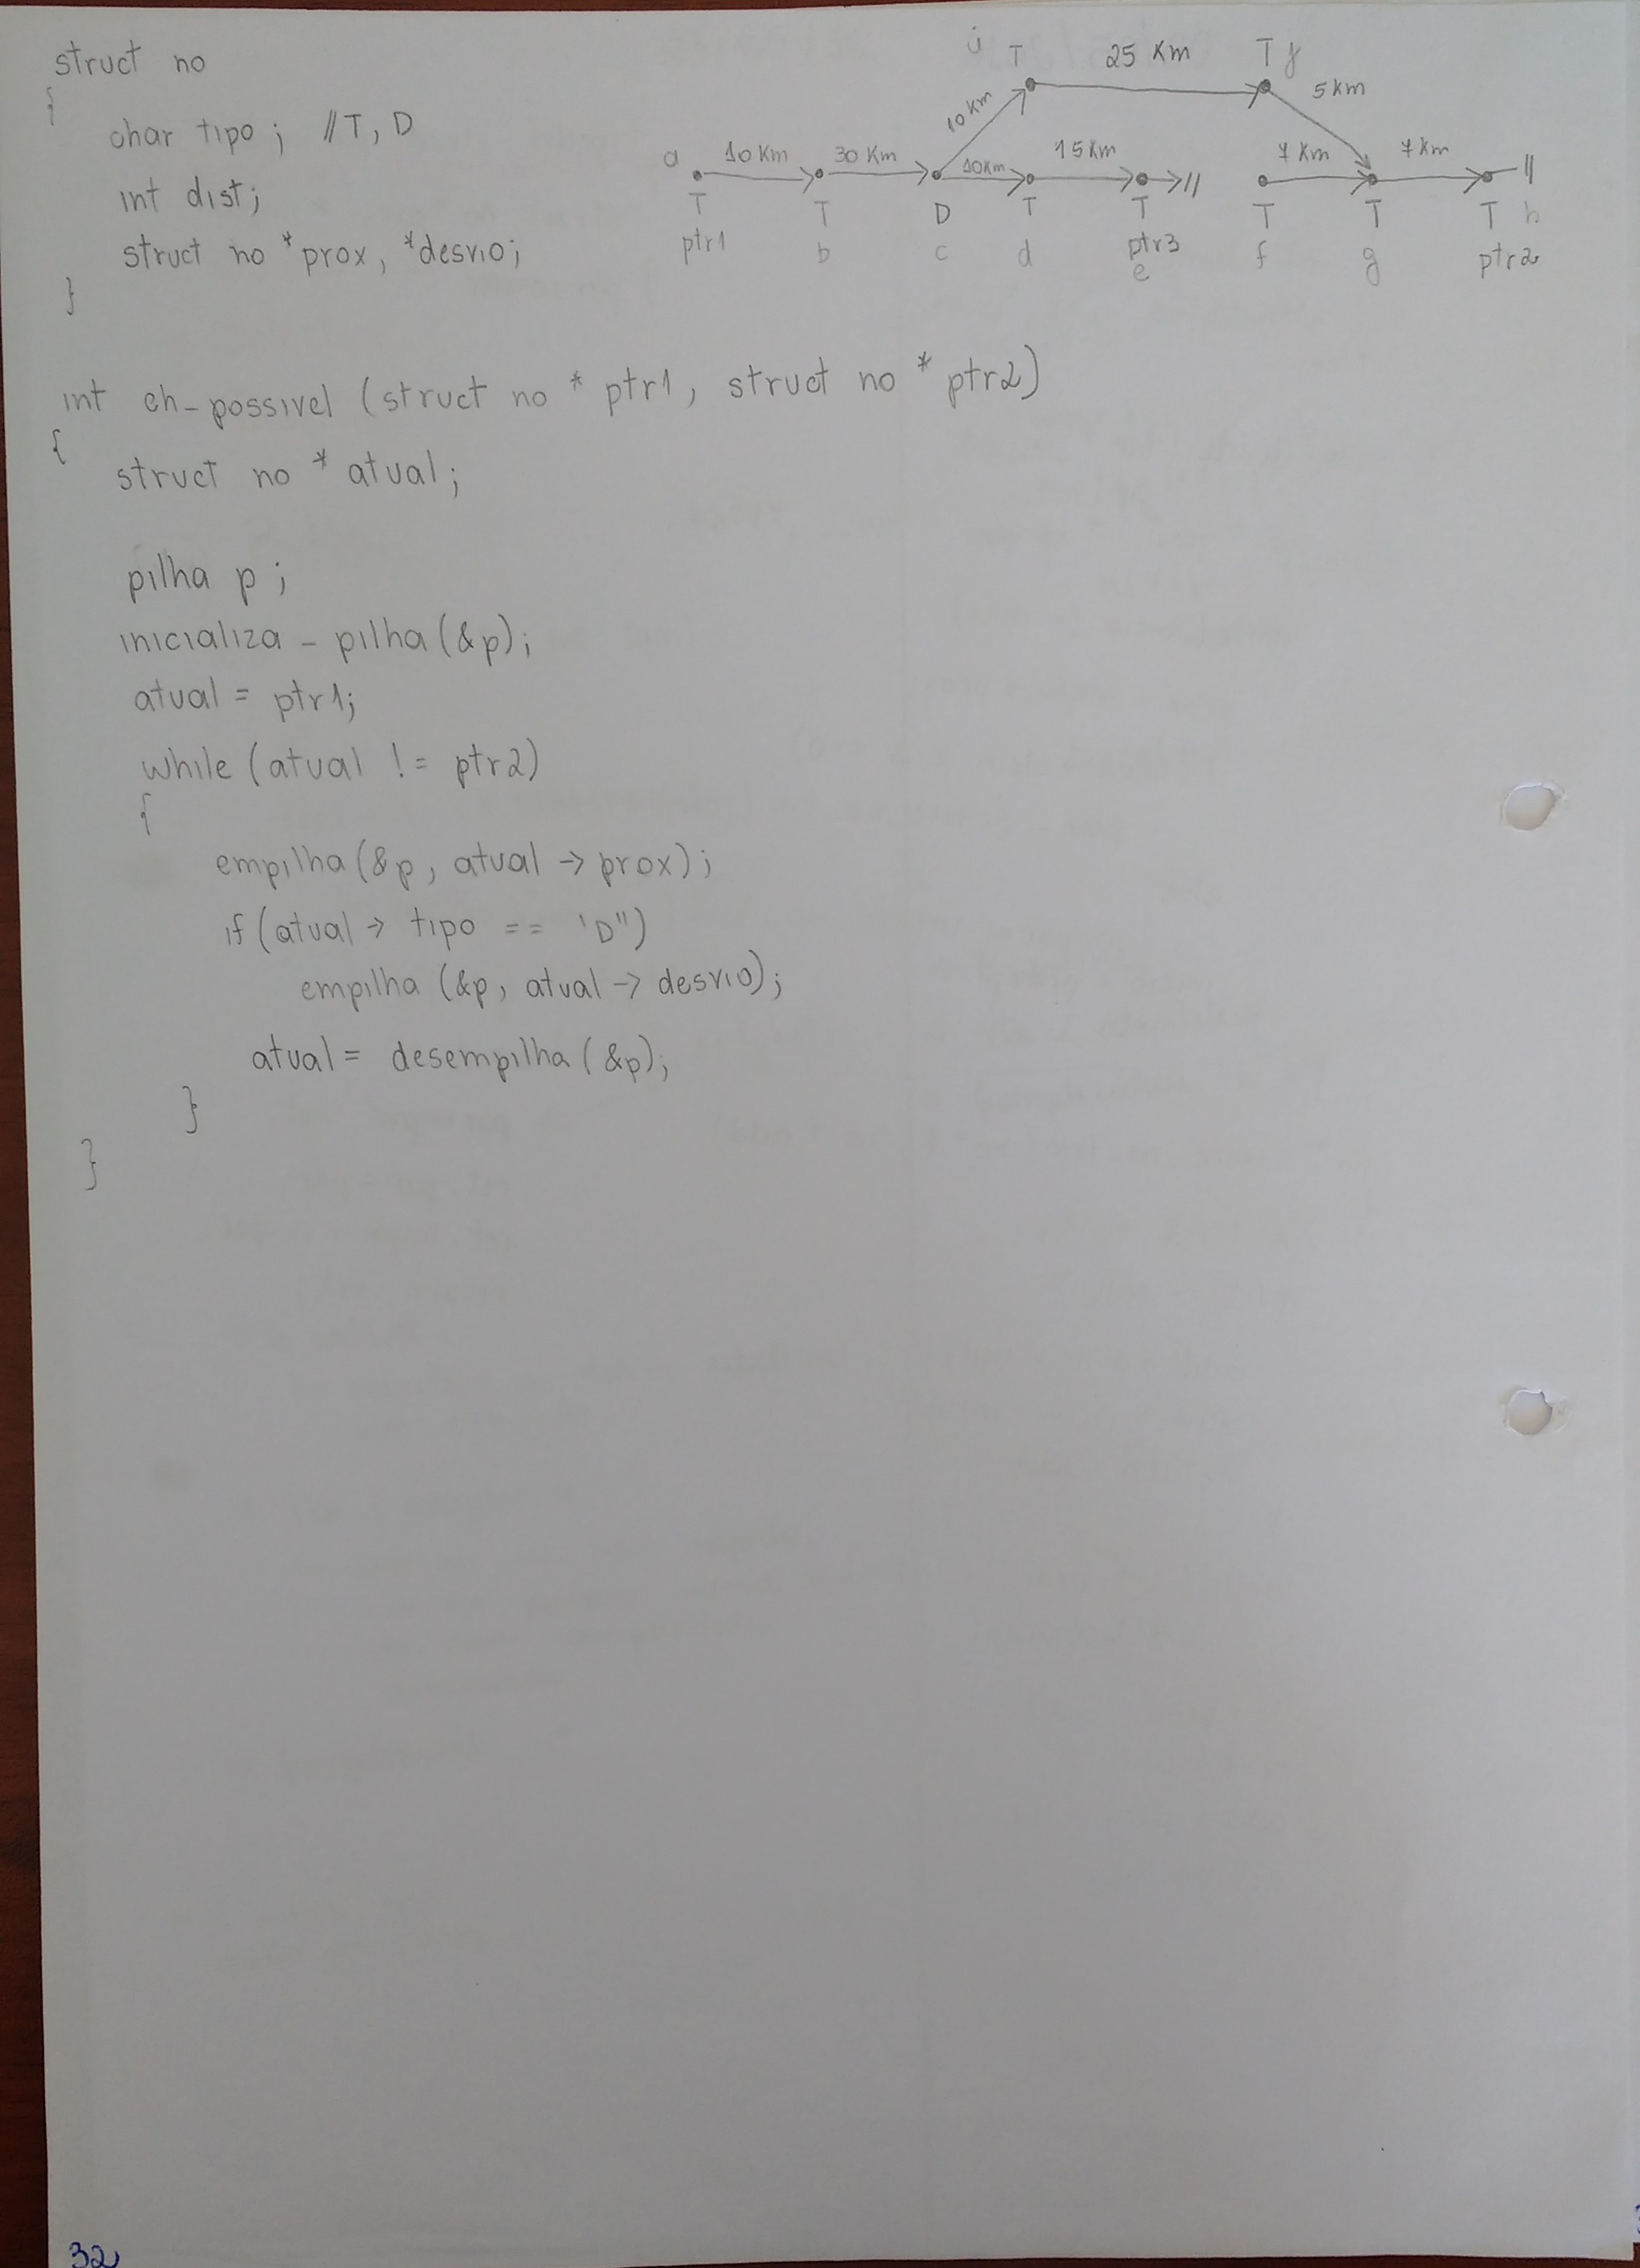 struct no
{
char tipo; //T, D
int dist;
struct no *prox, *desvio;
}
i T 25 Km T j
10 Km 5 Km
a 10 Km 30 Km 10Km 15 Km 7 Km 7 Km
T T D T T T T T h
ptr1 b c d ptr3 f g ptr2
e
int eh_possivel (struct no * ptr1, struct no * ptr2)
{
struct no * atual;
pilha p;
inicializa_pilha(&p);
atual = ptr1;
while (atual != ptr2)
{
empilha(&p, atual -> prox);
if (atual -> tipo == 'D")
empilha (&p, atual -> desvio);
atual = desempilha (&p);
}
}
32